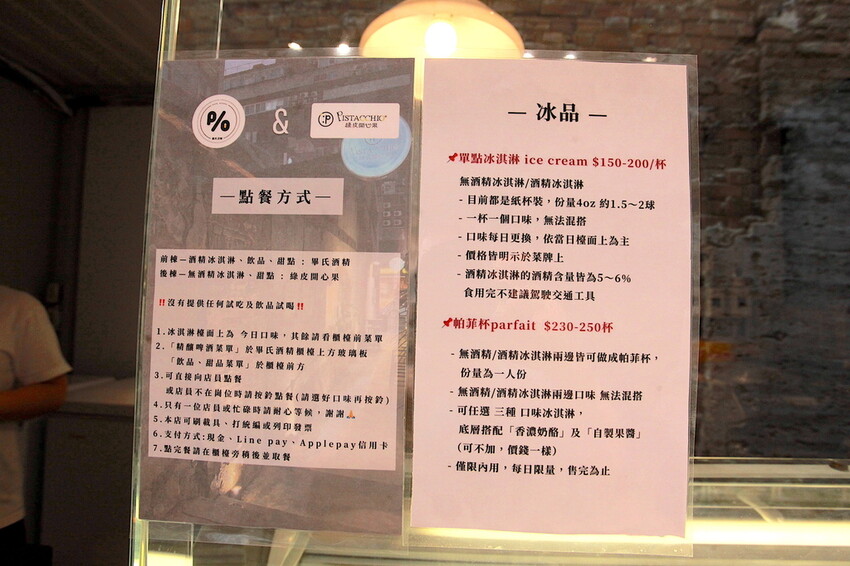 P/O
&
PISTACCHIO
綠皮開心果
—點餐方式—
前棟—酒精冰淇淋、飲品、甜點：畢氏酒精
後棟—無酒精冰淇淋、甜點：綠皮開心果
‼️沒有提供任何試吃及飲品試喝‼️
1.冰淇淋檯面上為 今日口味，其餘請看櫃檯前菜單
2.「精釀啤酒菜單」於畢氏酒精櫃檯上方玻璃板
「飲品、甜品菜單」於櫃檯前方
3.可直接向店員點餐
或店員不在崗位時請按鈴點餐(請選好口味再按鈴)
4.只有一位店員或忙碌時請耐心等候，謝謝🙏🏼
5.本店可刷載具、打統編或列印發票
6.支付方式:現金、Line pay、Applepay信用卡
7.點完餐請在櫃檯旁稍後並取餐
— 冰品 —
📌單點冰淇淋 ice cream $150-200/杯
無酒精冰淇淋/酒精冰淇淋
- 目前都是紙杯裝，份量4oz 約1.5～2球
- 一杯一個口味，無法混搭
- 口味每日更換，依當日檯面上為主
- 價格皆明示於菜牌上
- 酒精冰淇淋的酒精含量皆為5～6%
食用完不建議駕駛交通工具
📌帕菲杯parfait $230-250杯
- 無酒精/酒精冰淇淋兩邊皆可做成帕菲杯，
份量為一人份
- 無酒精/酒精冰淇淋兩邊口味 無法混搭
- 可任選 三種 口味冰淇淋，
底層搭配「香濃奶酪」及「自製果醬」
(可不加，價錢一樣)
- 僅限內用，每日限量，售完為止